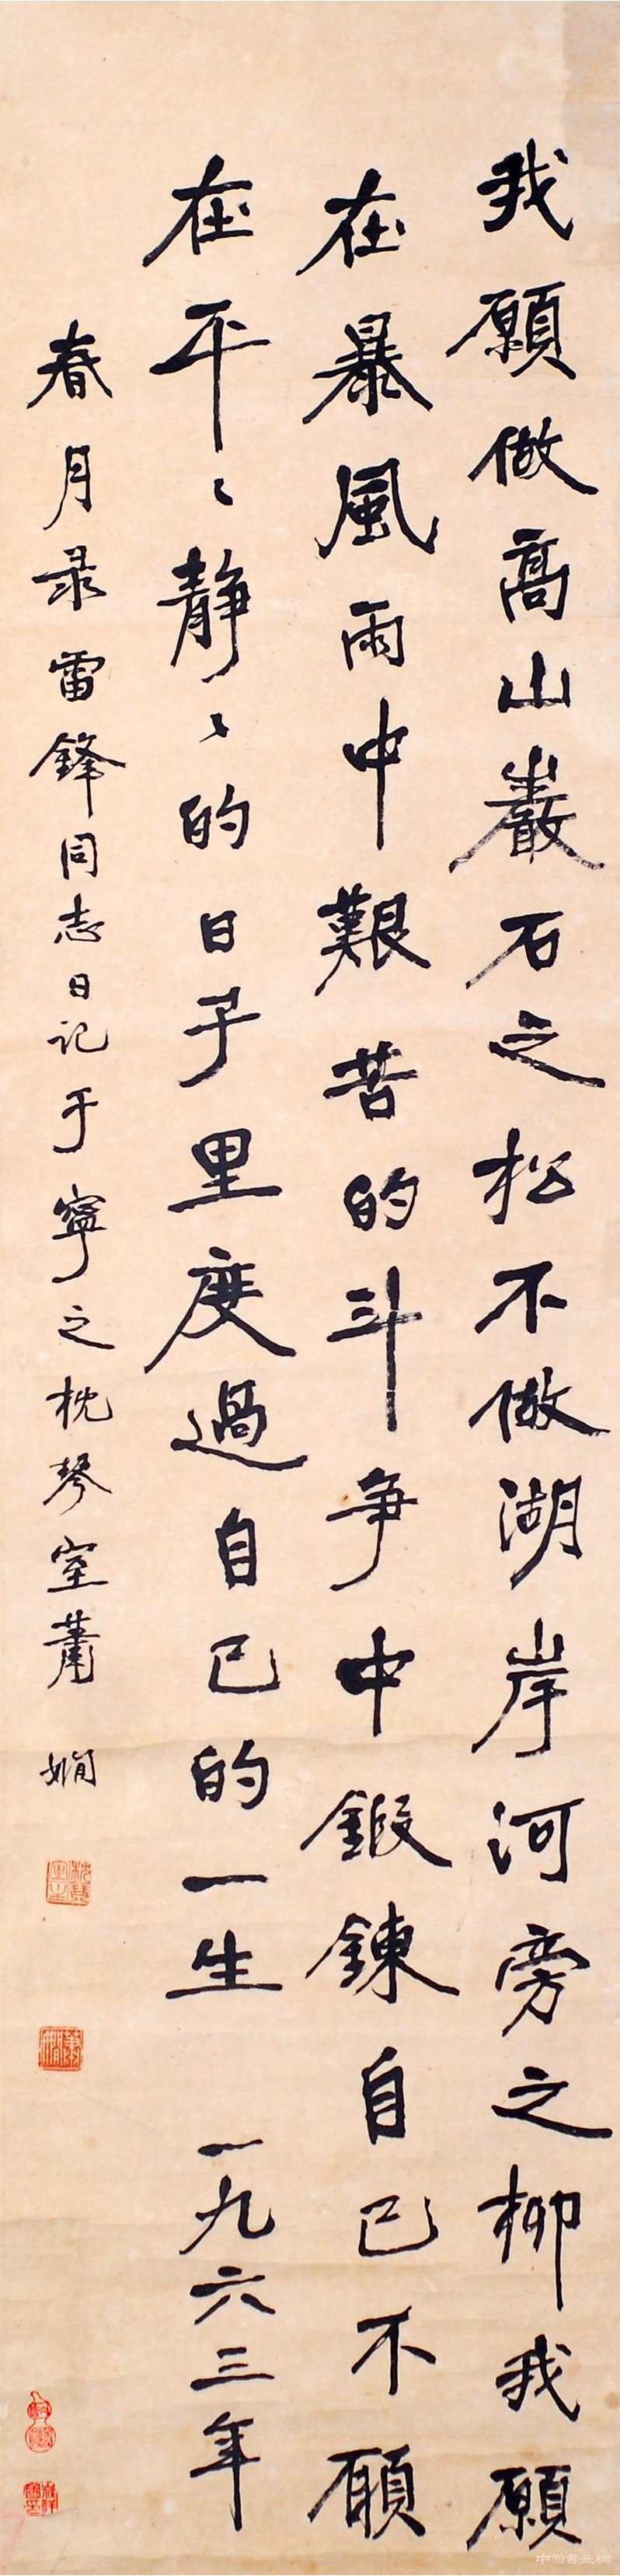 我願做高山巖石之松不做湖岸河旁之柳我願
在暴風雨中艱苦的斗争中鍛鍊自己不願
在平〻静〻的日子里度過自己的一生 一九六三年
春月录雷鋒同志日记于寧之枕琴室蕭嫻
枕琴室主
蕭嫻
中国书画网